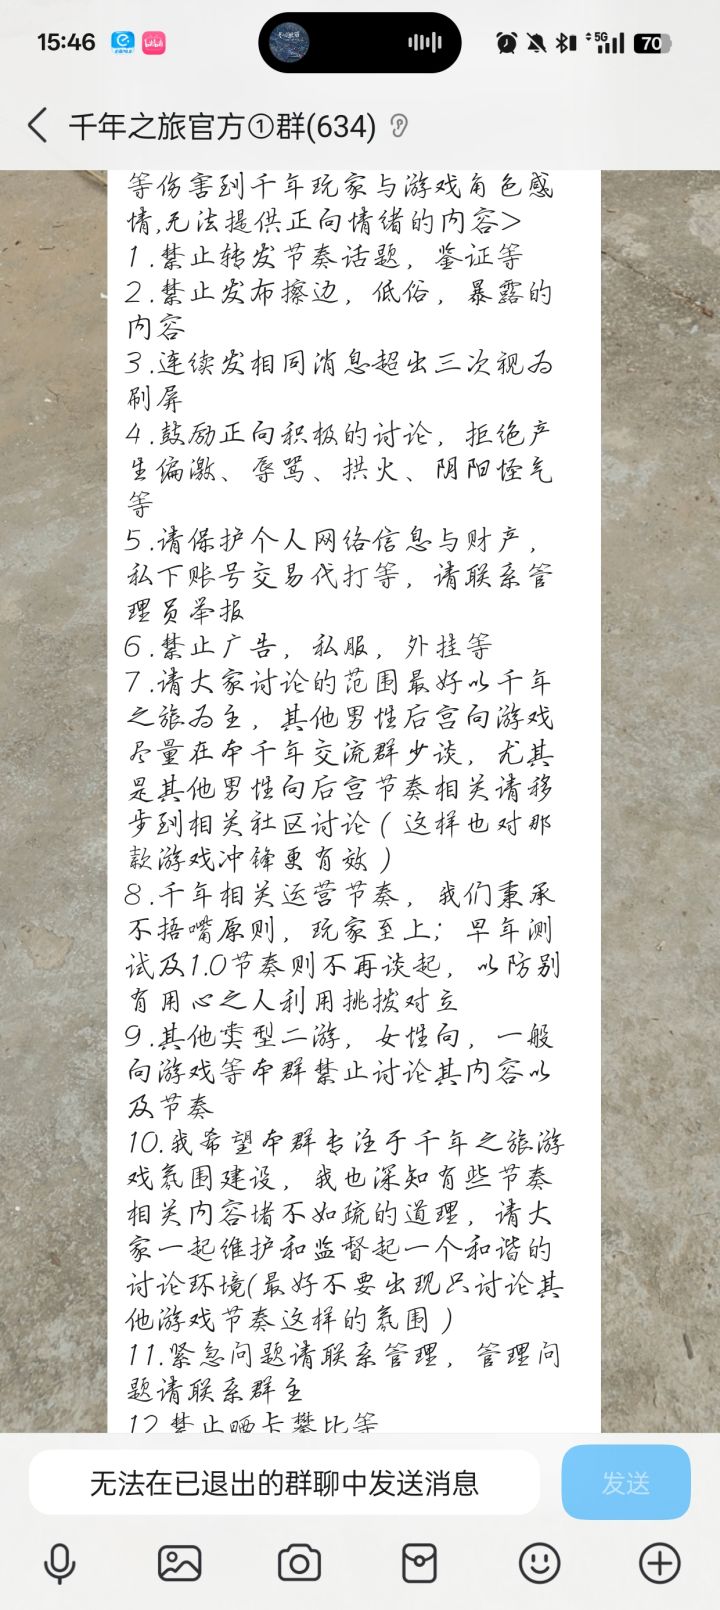 15:46
5G
70
千年之旅官方①群(634)
等伤害到千年玩家与游戏角色感
情,无法提供正向情绪的内容>
1.禁止转发节奏话题，鉴证等
2.禁止发布擦边，低俗，暴露的
内容
3.连续发相同消息超出三次视为
刷屏
4.鼓励正向积极的讨论，拒绝产
生偏激、辱骂、拱火、阴阳怪气
等
5.请保护个人网络信息与财产，
私下账号交易代打等，请联系管
理员举报
6.禁止广告，私服，外挂等
7.请大家讨论的范围最好以千年
之旅为主，其他男性后宫向游戏
尽量在本千年交流群少谈，尤其
是其他男性向后宫节奏相关请移
步到相关社区讨论（这样也对那
款游戏冲锋更有效）
8.千年相关运营节奏，我们秉承
不捂嘴原则，玩家至上；早年测
试及1.0节奏则不再谈起，以防别
有用心之人利用挑拨对立
9.其他类型二游，女性向，一般
向游戏等本群禁止讨论其内容以
及节奏
10.我希望本群专注于千年之旅游
戏氛围建设，我也深知有些节奏
相关内容堵不如疏的道理，请大
家一起维护和监督起一个和谐的
讨论环境(最好不要出现只讨论其
他游戏节奏这样的氛围）
11.紧急问题请联系管理，管理问
题请联系群主
12.禁止晒卡攀比等
无法在已退出的群聊中发送消息
发送